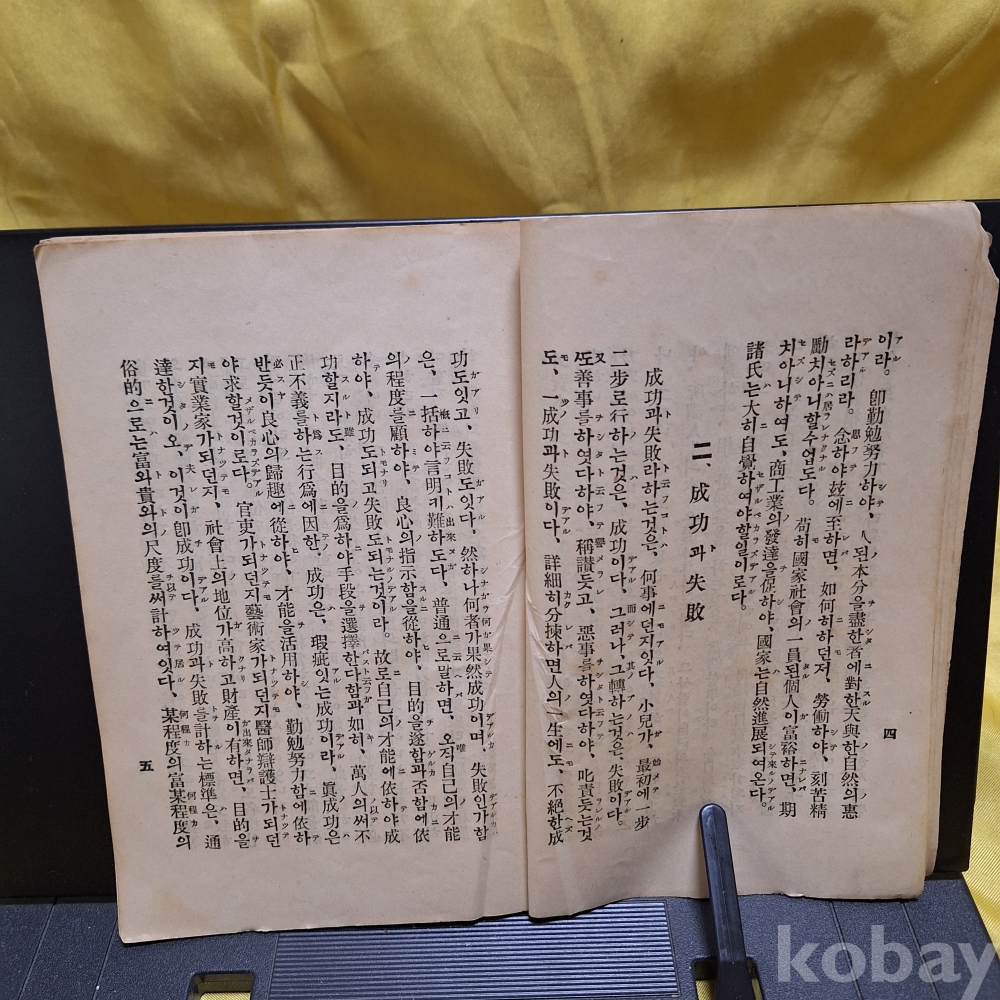 이라。 卽勤勉努力하야、人된本分을盡한者에對한天與한自然의惠
라하리라。 念하야玆에至하면、如何히하던저、勞働하야、刻苦精
勵치아니할수업도다。 苟히國家社會의一員된個人이富裕하면、期
치아니하여도、商工業의發達을促하야、國家는自然進展되여온다。
諸氏는大히自覺하여야할일이로다。
二、成功과失敗
成功과失敗라하는것은、何事에던지잇다、小兒가、最初에一步
二步로行하는것은、成功이다、그러나、그轉하는것은、失敗이다。
또善事를하엿다하야、稱讚듯고、惡事를하엿다하야、叱責듯는것
도、一成功과失敗이다、詳細히分揀하면人의一生에도、不絕한成
四
功도잇고、失敗도잇다。然하나何者가果然成功이며、失敗인가함
은、一括하야言明기難하도다、普通으로말하면、오직自己의才能
의程度를顧하야、良心의指示함을從하야、目的을遂함과否함에依
하야、成功도되고失敗도되는것이라。故로自己의才能에依하야成
功할지라도、目的을爲하야手段을選擇한다함과如히、萬人의써不
正不義를하는行爲에因한、成功은、瑕疵잇는成功이라、眞成功은
반듯이良心의歸趣에從하야、才能을活用하야、勤勉努力함에依하
야求할것이로다。 官吏가되던지藝術家가되던지醫師辯護士가되던
지實業家가되던지、社會上의地位가高하고財產이有하면、目的을
達한것이오、이것이卽成功이다、成功과失敗를計하는標準은、通
俗的으로는富와貴와의尺度를써計하여잇다、某程度의富某程度의
五
kobay